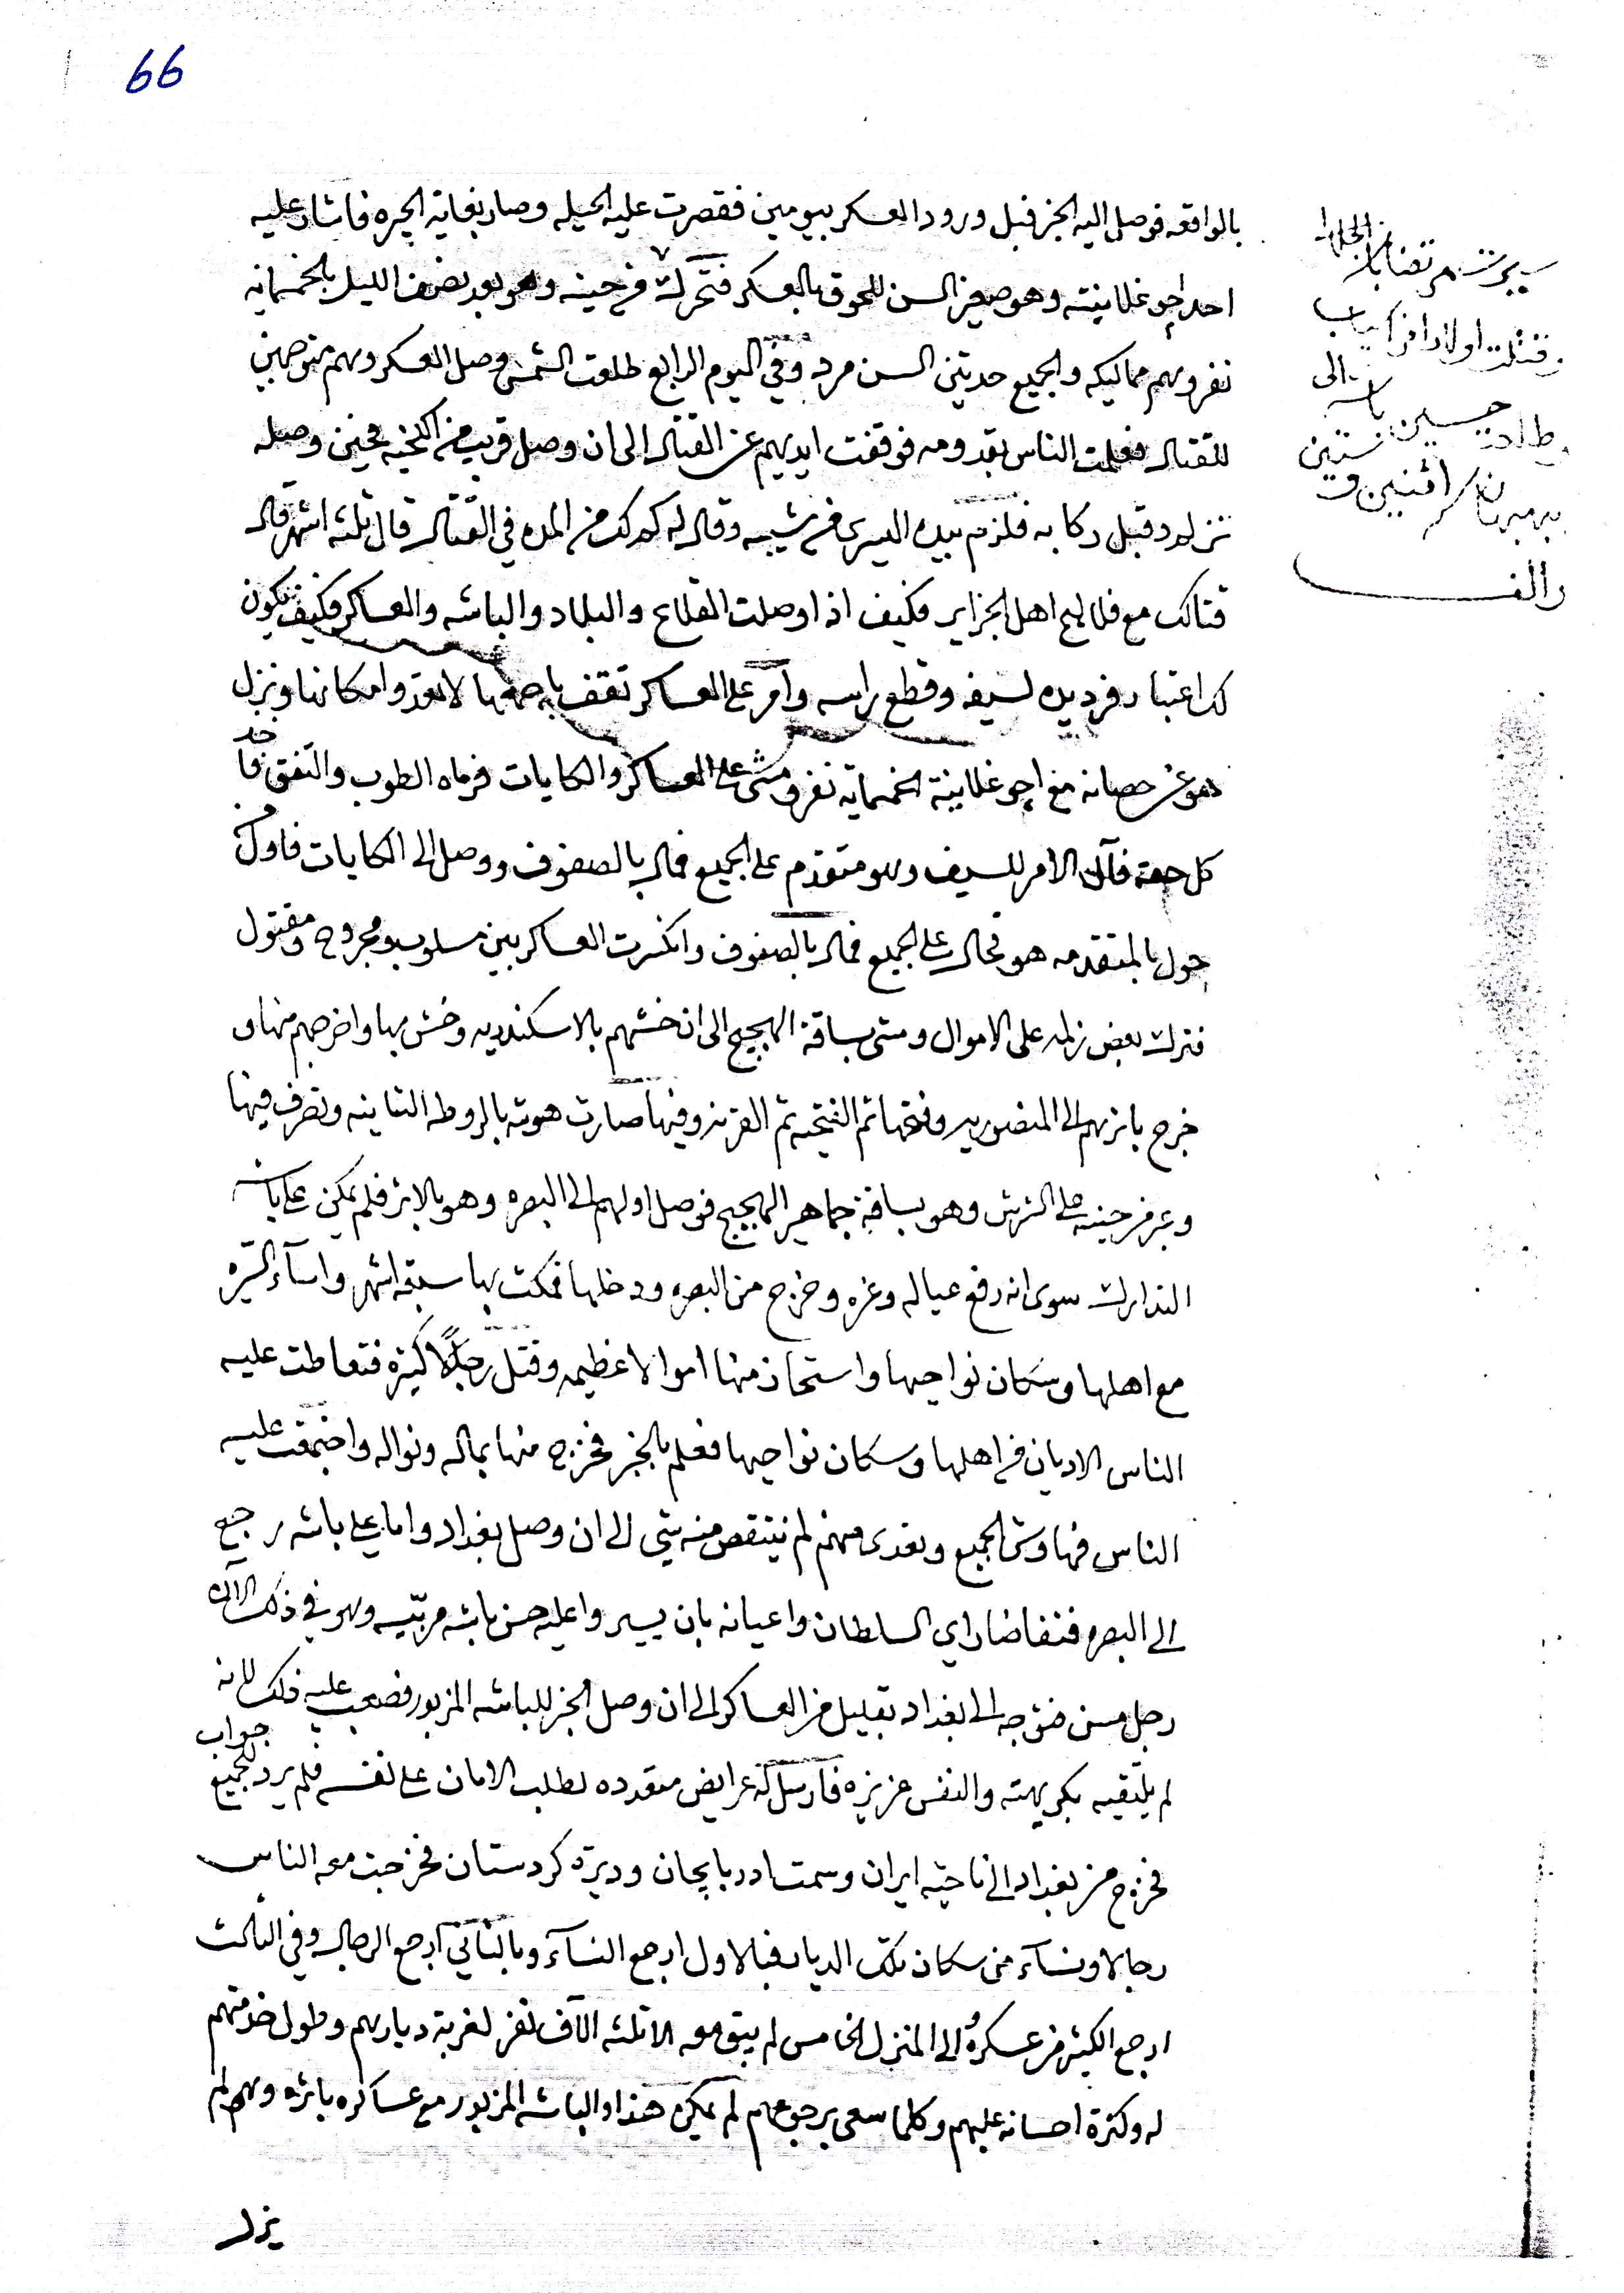 66
بالواقعه فوصل اليه الخبر قبل ورود العسكر بيومين فقصرت عليه الحيله وصار بغاية الحيره فاشار عليه
احد اچوغلانيته وهو صغير السن للحوق بالعسكر فتحرك من حينه وهو بعد نصف الليل بالخمسمائه
نفر وهم مماليكه والجميع حديثي السن مرد وفي اليوم الرابع طلعت الشمس وصل العسكر وهم متوجهين
للقتال فعلمت الناس بقدومه فوقفت ايديهم عن القتال الى ان وصل قريب من الكخيه فحين وصله
نزل وقبل ركابه فلزم بيده اليسرى من شيبه وقال له كم لك من المده في القتال قال ثلثه اشهر قال
قتالك مع فلاليح اهل الجزاير فكيف اذا وصلت القلاع والبلاد والباشه والعساكر فكيف يكون
لك اعتبار فرد يده لسيفه وقطع راسه وامر على العساكر تقف باجمعها لا تعدوا مكانها ونزل
هو عن حصانه مع اچوغلانيته الخمسمايه نفر ومشى على العساكر والكايات فرماه الطوب والتفق
كل جهة فآل الامر للسيف وهو متقدم على الجميع فمال بالصفوف ووصل الى الكايات فاول من
جول بالمتقدمه هو فحال على الجميع فمال بالصفوف وانكسرت العساكر بين مسلوب ومجروح ومقتول
فترك بعض زلمه على الاموال ومشى بساقة الهجيج الى ان خشهم بالاسكندريه وخش بها واخرجهم منها و
خرج باثرهم الى المنصوريه وفتحها ثم الفتحيه ثم القرنه وفيها صارت هوته بالروطه الثانيه وتصرف فيها
وعبر من حينه على الشرش وهو بساقة جماهير الهجيج فوصل اولهم الى البصره وهو بالاثر فلم يمكن علي باشه
التدارك سوى انه رفع عياله وغره وخرج من البصره ودخلها فمكث بها سبعة اشهر واساء السيره
مع اهلها وسكان نواحيها واستحاذ منها اموالا عظيمه وقتل رجالا كثيره فتعاطت عليه
الناس الاديان من اهلها وسكان نواحيها فعلم بالخبر فخرج منها بماله ونواله واجتمعت عليه
الناس فهاوش الجميع وتعدى منهم لم ينتقص منه شي الى ان وصل بغداد واما علي باشه رجع
الى البصره فتفاضا راي السلطان واعيانه بان يسيروا عليه حسن باشه مربيه وهو في ذلك الآن
رجل مسن فتوجه الى بغداد بقليل من العساكر الى ان وصل الخبر للباشه المزبور فصعب عليه ذلك لانه
لم يلتقيه بكريهته والنفس عزيزه فارسل له عرايض متعدده لطلب الامان على نفسه فلم يرد للجميع جواب
فخرج من بغداد الى ناحية ايران وسمت ادربايجان وديرة كردستان فخرجت معه الناس
رجالا ونسآء من سكان تلك الديار فبالاول ارجع النسآء وبالثاني ارجع الرجال وفي الثالث
ارجع الكثير من عسكره الى المنزل الخامس لم يبق معه الا ثلثه الآف نفر لغربة ديارهم وطول خدمتهم
له وكثرة احسانه عليهم وكلما سعى برجوعهم لم يمكن هذا والباشه المزبور مع عساكره باثره وهم لم
يزل
مرتضا باشه
وقتلت اولاد افراسياب
الى
حسين باشه
اثنين و ستين
والف